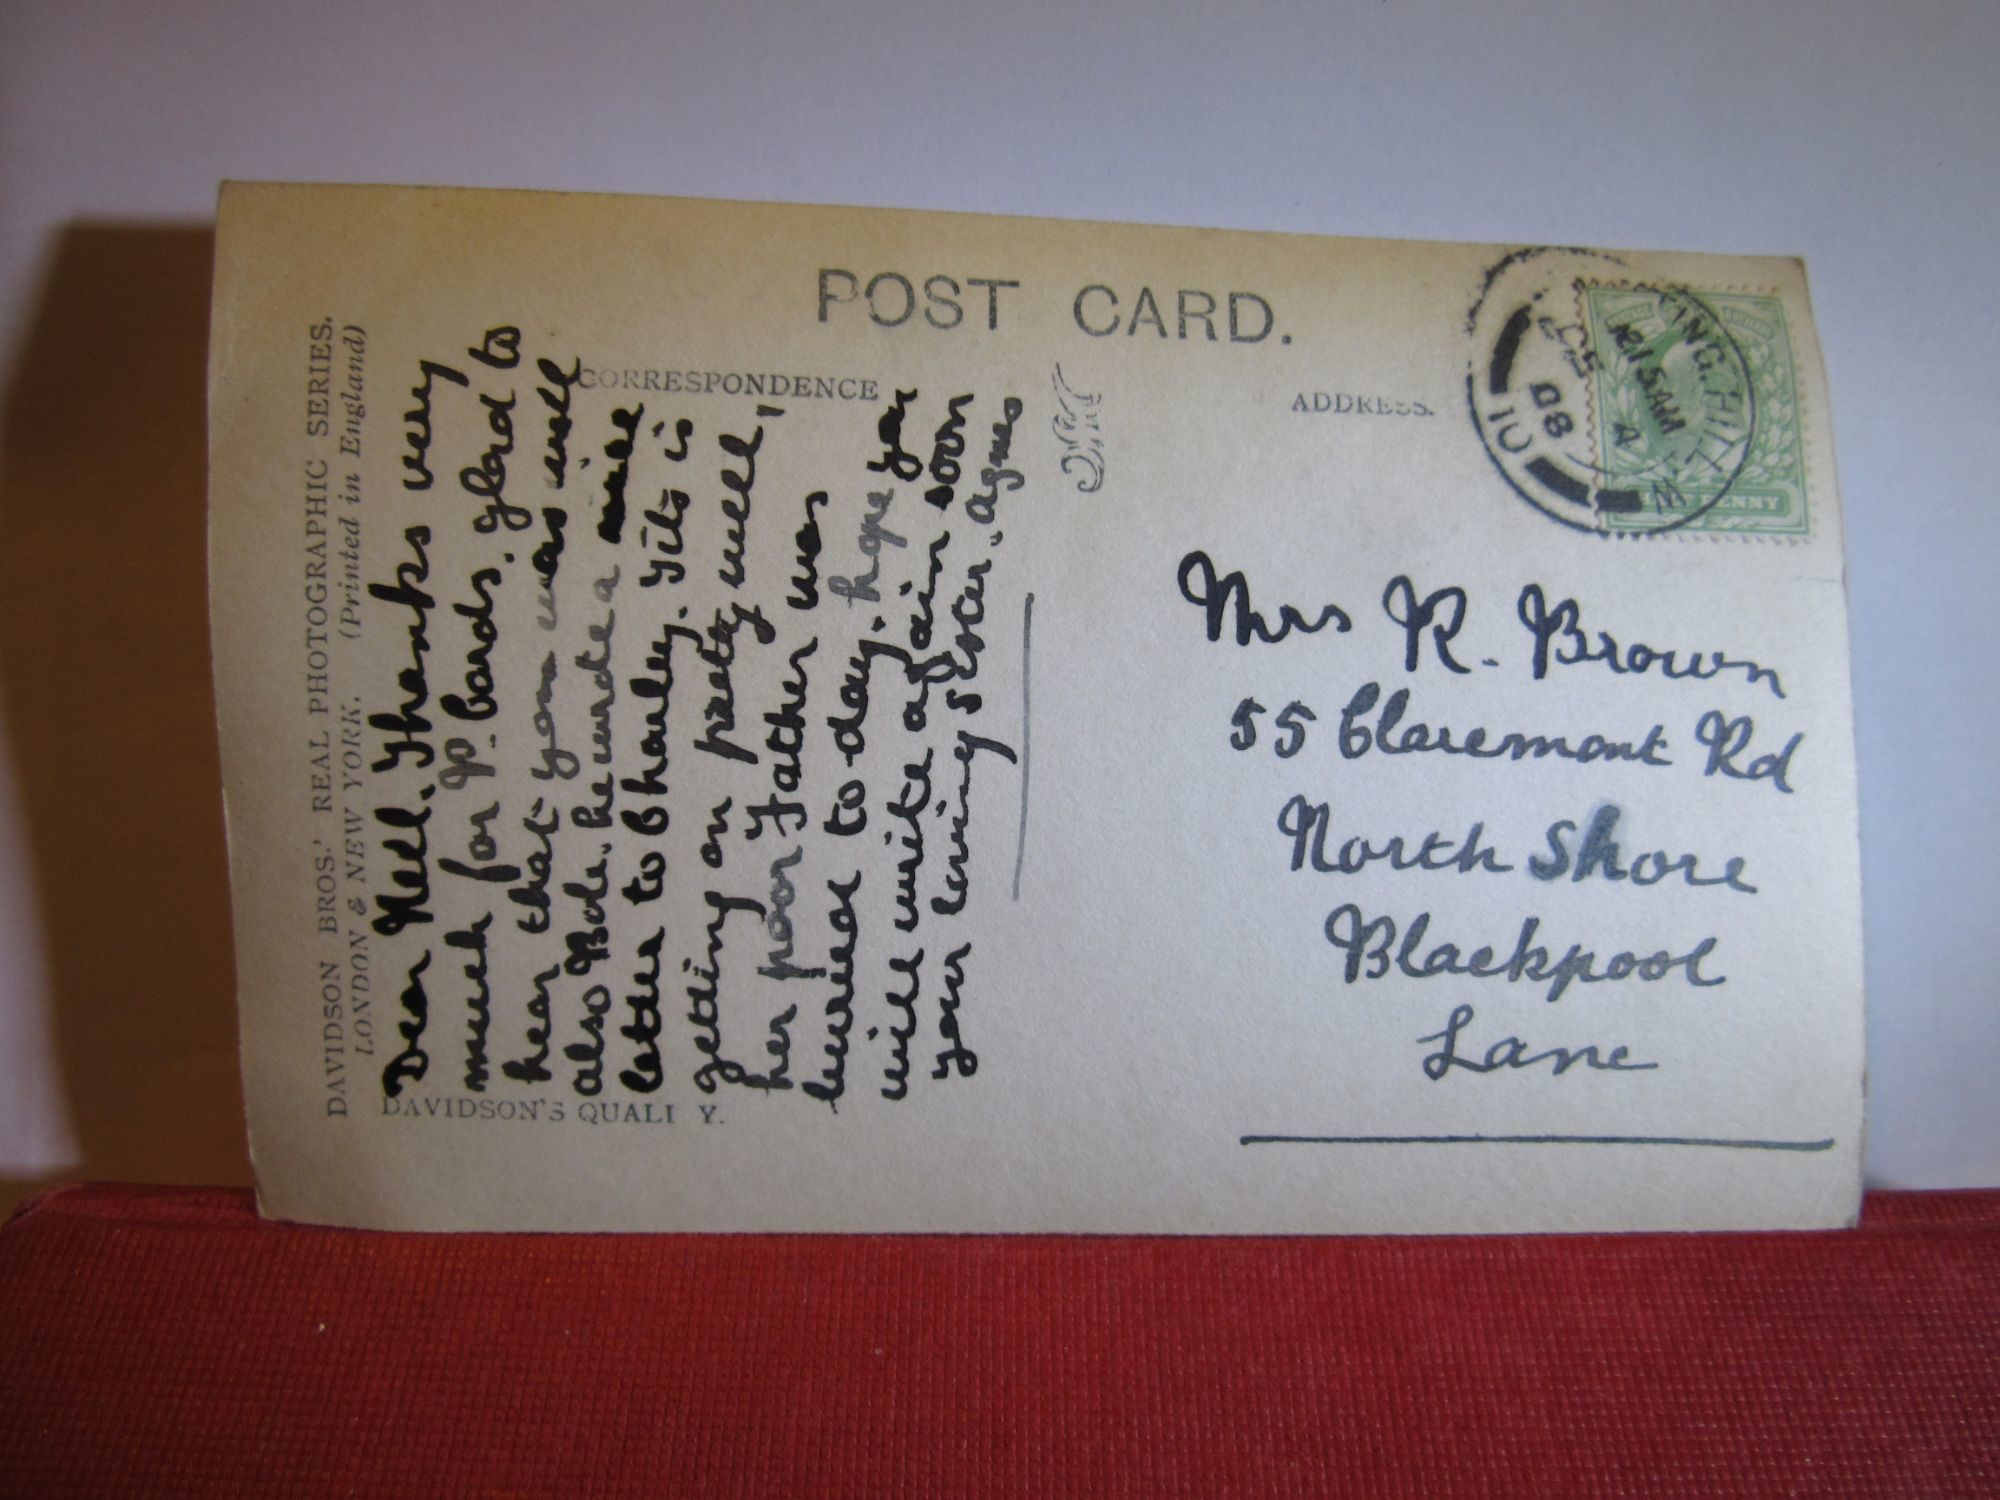 POST CARD.
DAVIDSON BROS.' REAL PHOTOGRAPHIC SERIES.
LONDON & NEW YORK. (Printed in England)
CORRESPONDENCE
ADDRESS.
DAVIDSON'S QUALI Y.
Dear Nell. Thanks very
much for P. Cards. glad to
hear that you was well
also Bob. he wrote a nice
letter to Charley. Tits is
getting on pretty well,
her poor Father was
burried to day. hope you
will write again soon
your loving sister. Agnes
Mrs R. Brown
55 Claremont Rd
North Shore
Blackpool
Lane
HILL
1215AM
A
10
08
PENNY